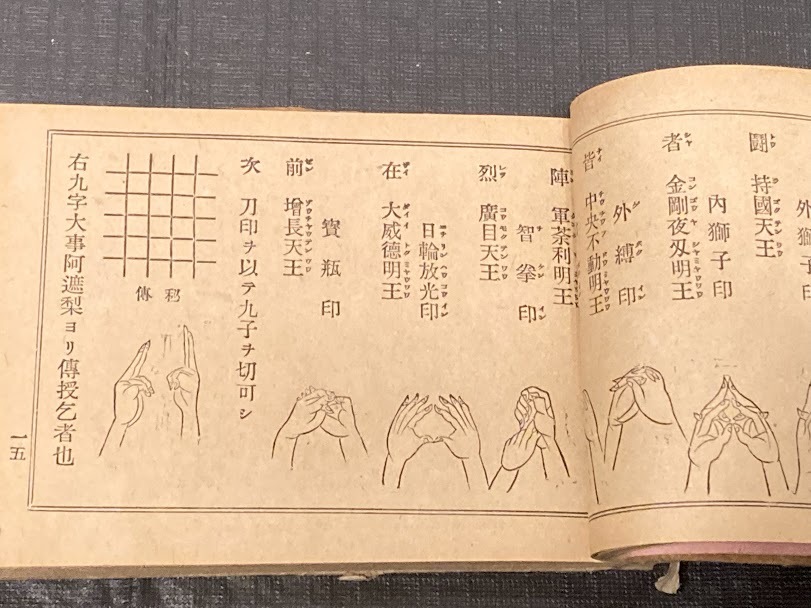 外獅子
闘 持國天王
內獅子印
者 金剛夜叉明王
外縛印
皆 中央不動明王
陣 軍荼利明王
智拳印
烈 廣目天王
日輪放光印
在 大威德明王
寶瓶印
前 增長天王
次 刀印ヲ以テ九子ヲ切可シ
傳
右九字大事阿遮梨ヨリ傳授乞者也
一五